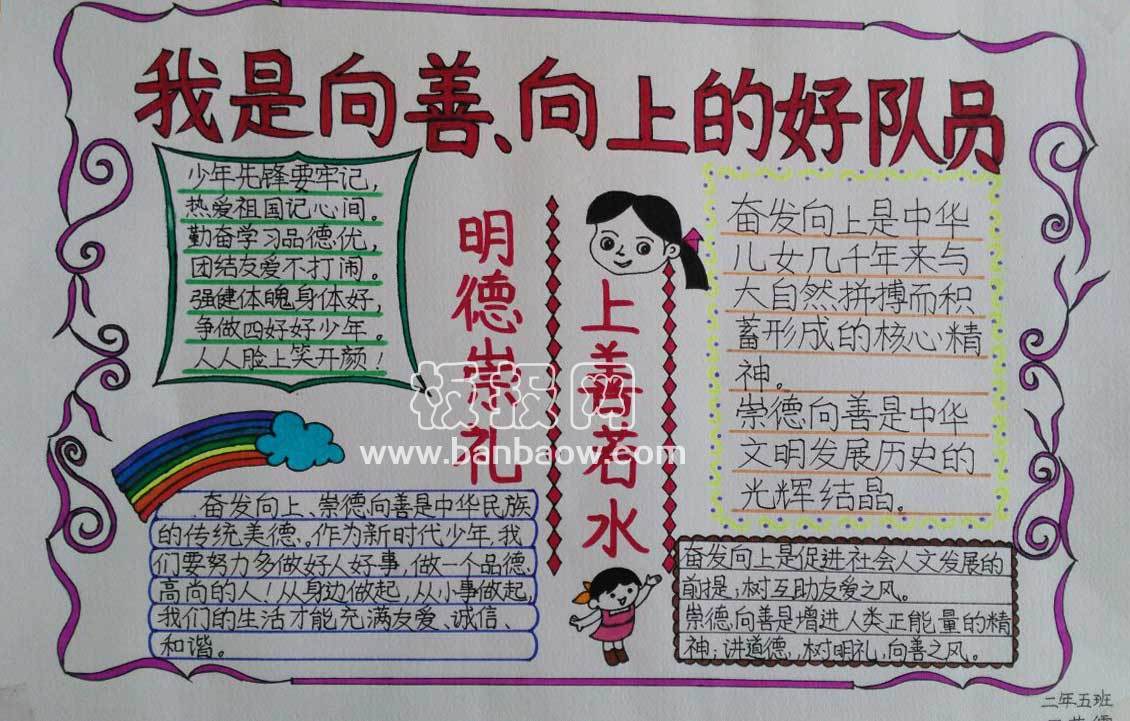 我是向善、向上的好队员
少年先锋要牢记，
热爱祖国记心间。
勤奋学习品德优，
团结友爱不打闹。
强健体魄身体好，
争做四好好少年。
人人脸上笑开颜！
明德崇礼
上善若水
奋发向上是中华
儿女几千年来与
大自然拼搏而积
蓄形成的核心精
神。
崇德向善是中华
文明发展历史的
光辉结晶。
板报网
www.banbaow.com
奋发向上、崇德向善是中华民族
的传统美德。作为新时代少年，我
们要努力多做好人好事，做一个品德
高尚的人！从身边做起，从小事做起，
我们的生活才能充满友爱、诚信、
和谐。
奋发向上是促进社会人文发展的
前提；树互助友爱之风。
崇德向善是增进人类正能量的精
神；讲道德，树明礼，向善之风。
二年五班